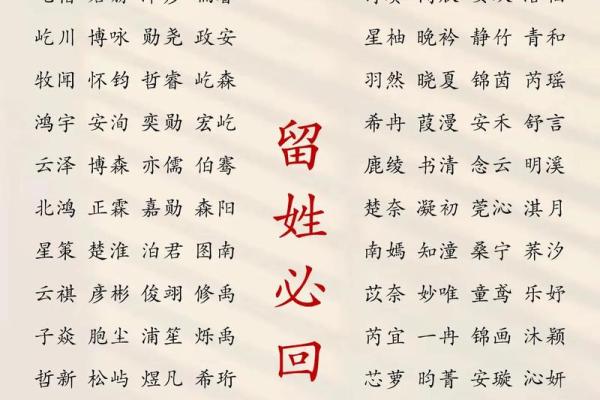 屹川 博咏 勋尧 政安
牧闻 怀钧 哲睿 屹森
鸿宇 安洵 奕勋 宏屹
云泽 博森 亦儒 伯骞
北鸿 正霖 嘉勋 森阳
星策 楚淮 泊君 图南
云祺 彦彬 俊翊 修禹
子焱 胞尘 浦笙 烁禹
哲新 松屿 煜凡 希珩
留姓必回
星柚 晚衿 静竹 青和
羽然 晓夏 锦茵 芮瑶
希冉 葭漫 安禾 舒言
鹿绫 书清 念云 明溪
楚奈 凝初 莞沁 淇月
南嫣 知潼 桑宁 荞汐
苡奈 妙唯 童鸢 乐妤
芮宜 一冉 锦画 沐颖
芯萝 昀菁 安璇 沁妍